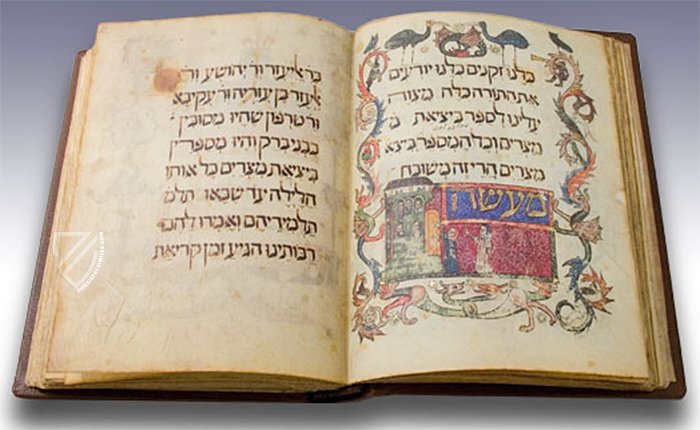 כלנו זקנים כלנו יודעים
את התורה כלה מצוה
עלינו לספר ביציאת מ
מצרים וכל המספר ביצא
מצרים הרי זה משובח
מעשה
בר אליעזר ור יהושע ור
אלעזר בן עזריה ור עקיבא
ור טרפון שהיו מסובין
בבני ברק והיו מספרין
ביציאת מצרים כל אותו
הלילה עד שבאו תלמ
תלמידיהם ואמרו להם
רבותינו הגיע זמן קריאת